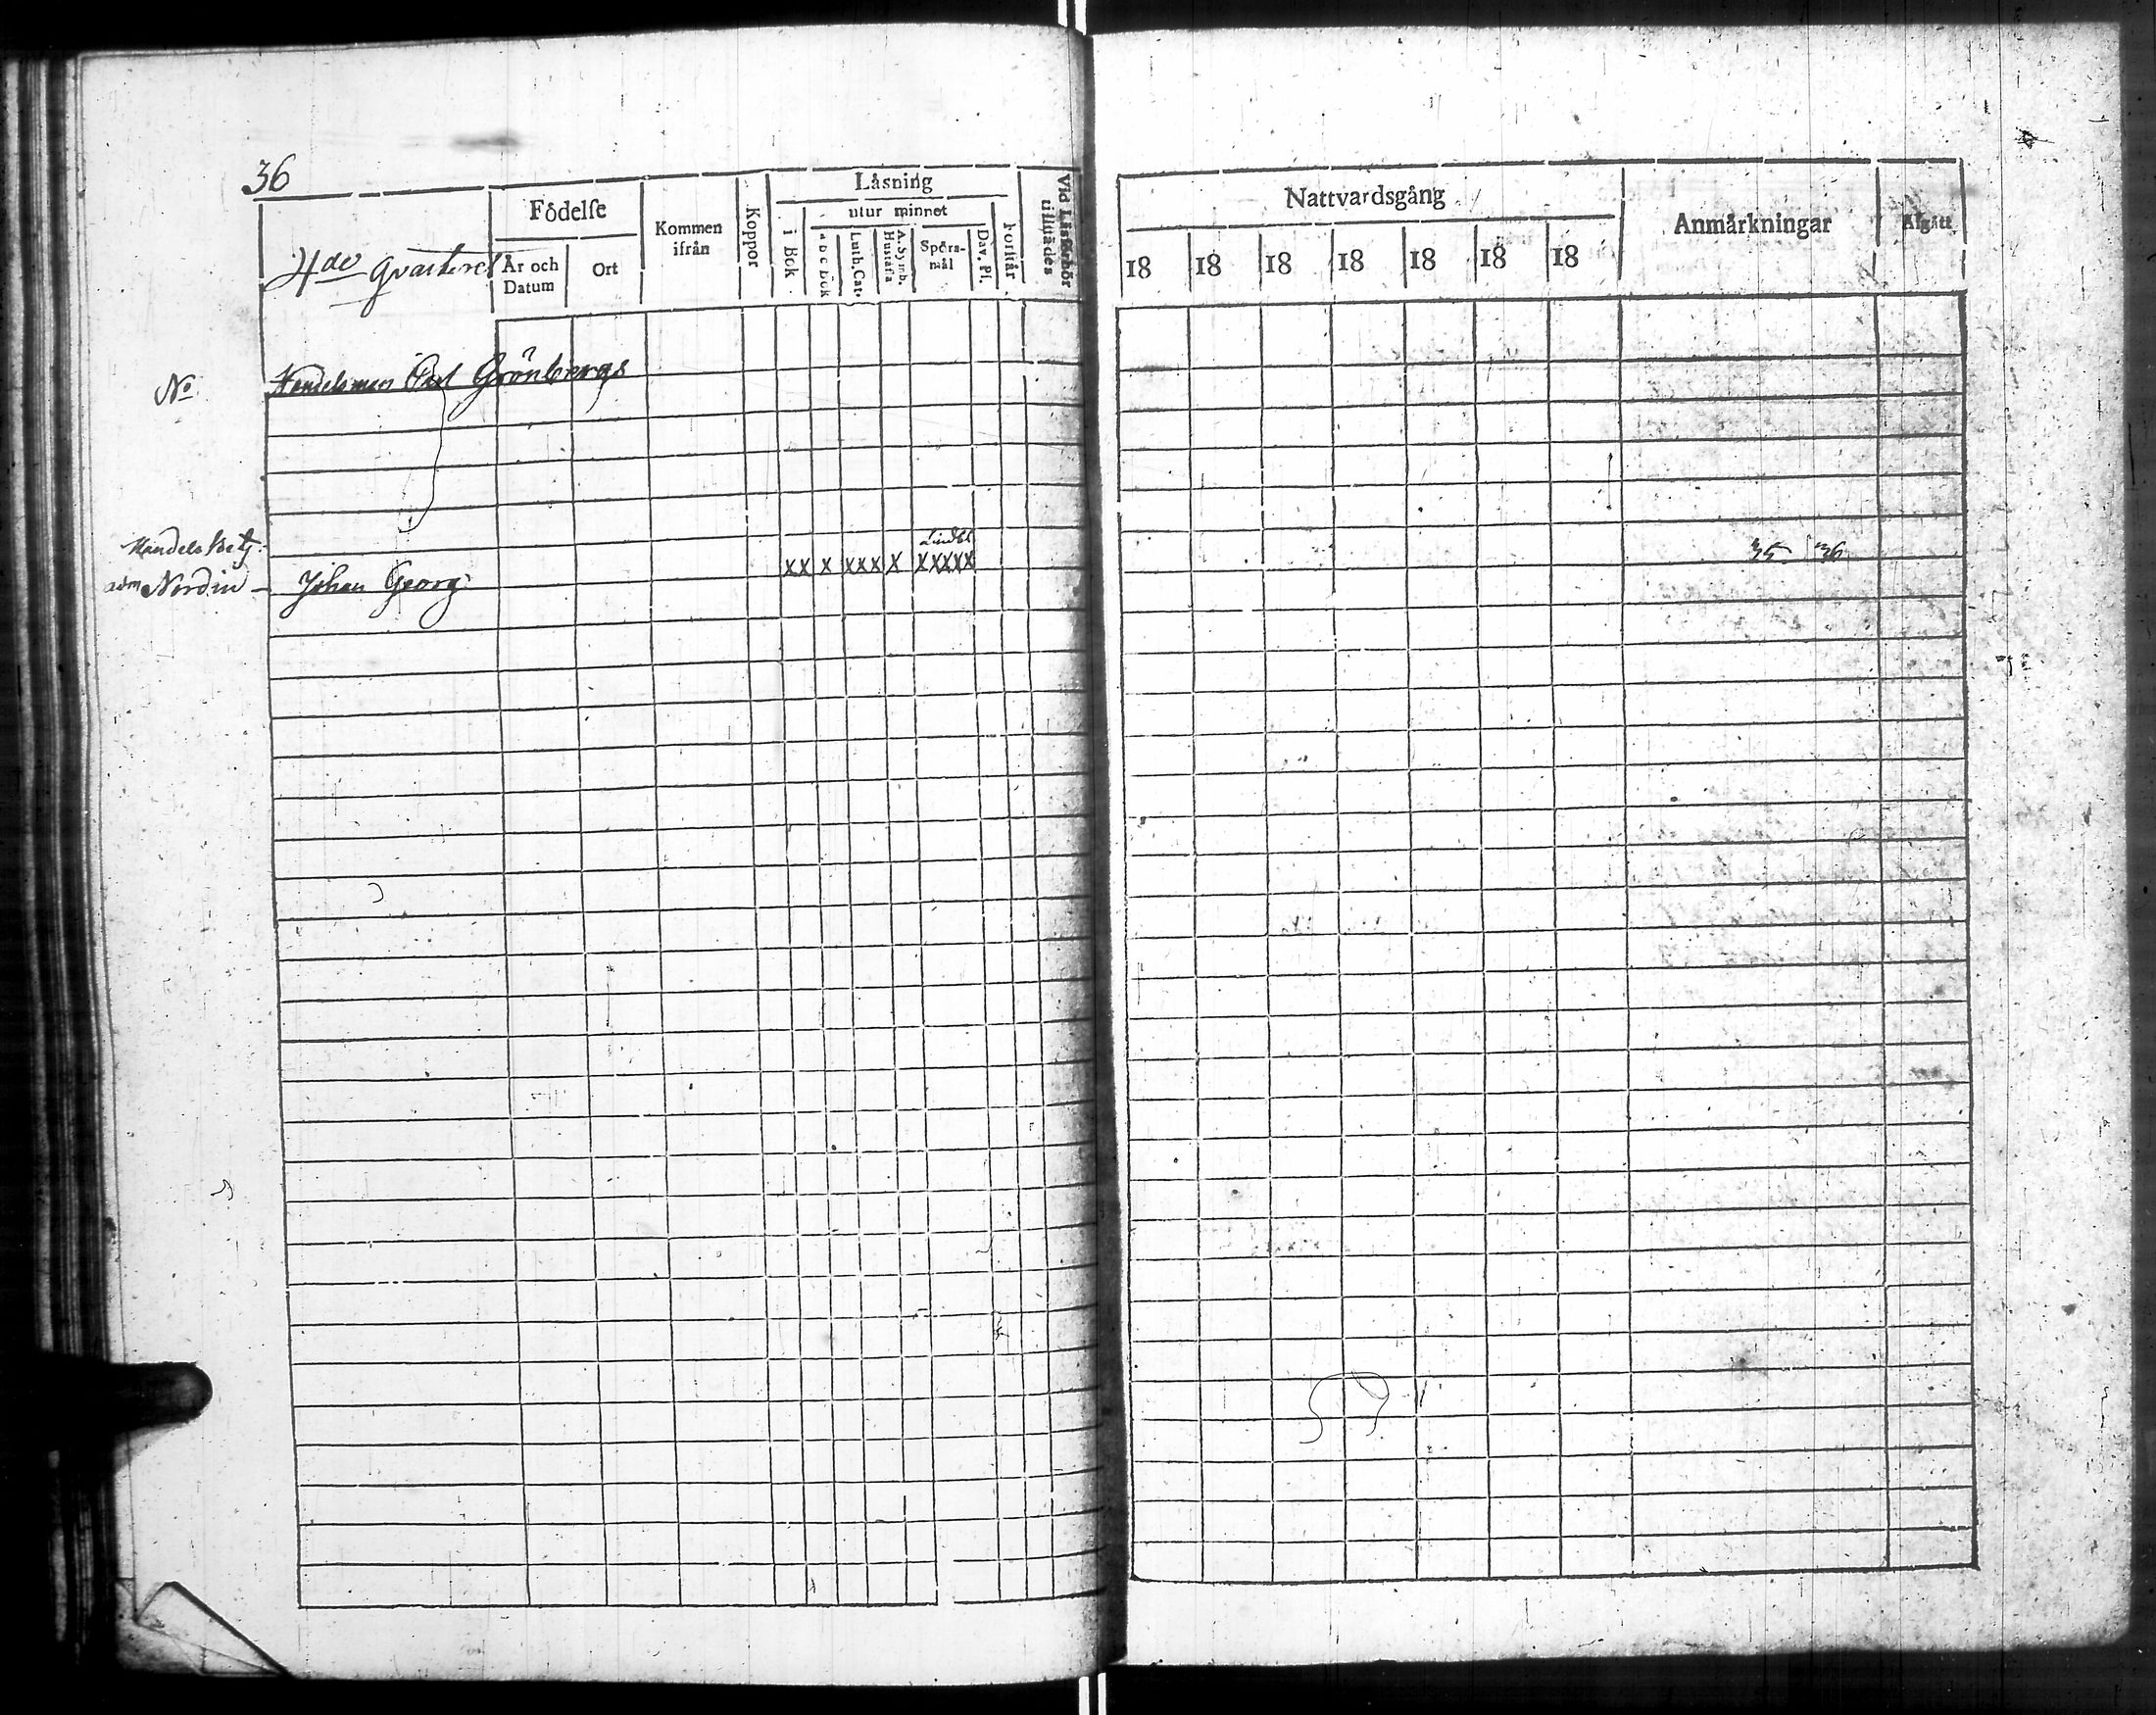 36
4de Qvarteret
Födelse
År och Datum
Ort
Kommen ifrån
Koppor
Läsning
i Bok
utur minnet
a b c bok
Luth. Cat.
A. Symb. Hustafla
Spörsmål
Dav. Pſ.
Förſtår
Vid Läsförhör tillſtädes
Nattvardsgång
18 18 18 18 18 18 18
Anmärkningar
Afgått
No Handelsman Grönbergs
Lindbl
Handels Betj:
Nordin – Johan Georg
xx x xxx x xxxxx
35 36